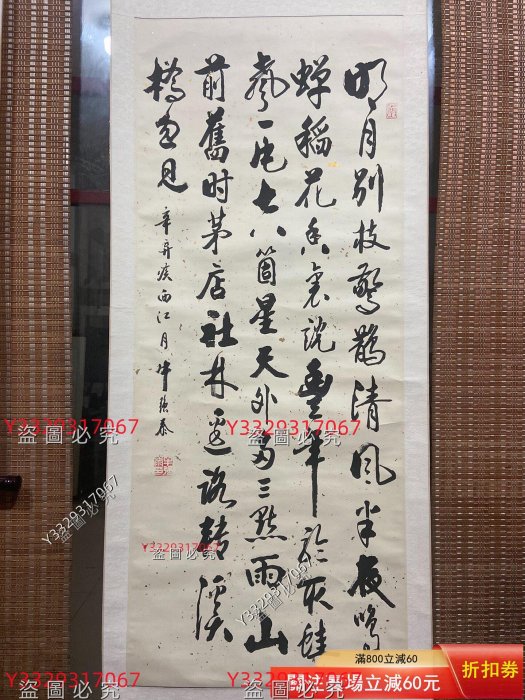 明月别枝驚鵲清风半夜鳴
蝉稻花香裏说豐年听取蛙
聲一片七八箇星天外两三點雨山
前舊时茅店社林边路转溪
橋忽見
辛弃疾西江月
Y3329317067
盗圖必究
Y3329317067
盗圖必究
Y3329317067
盗圖必究
Y3329317067
盗圖必究
Y3329317067
盗圖必究
Y3329317067
盗圖必究
滿800立減60
關注賣場立減60元
折扣券